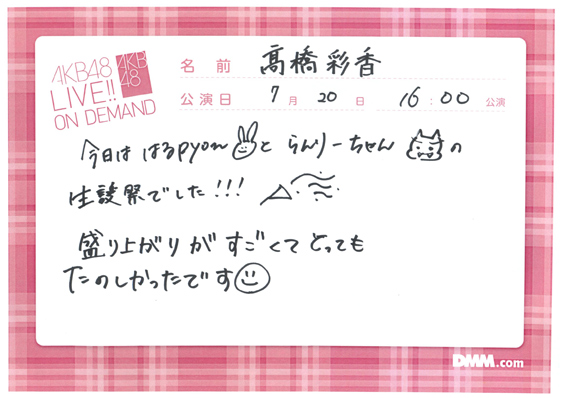 AKB48
LIVE!!
ON DEMAND
AKB
48
名前 髙橋彩香
公演日 7月20日 16:00公演
今日は はるpyonと らんりーちゃんの
生誕祭でした!!!
盛り上がりがすごくてとっても
たのしかったです
DMM.com